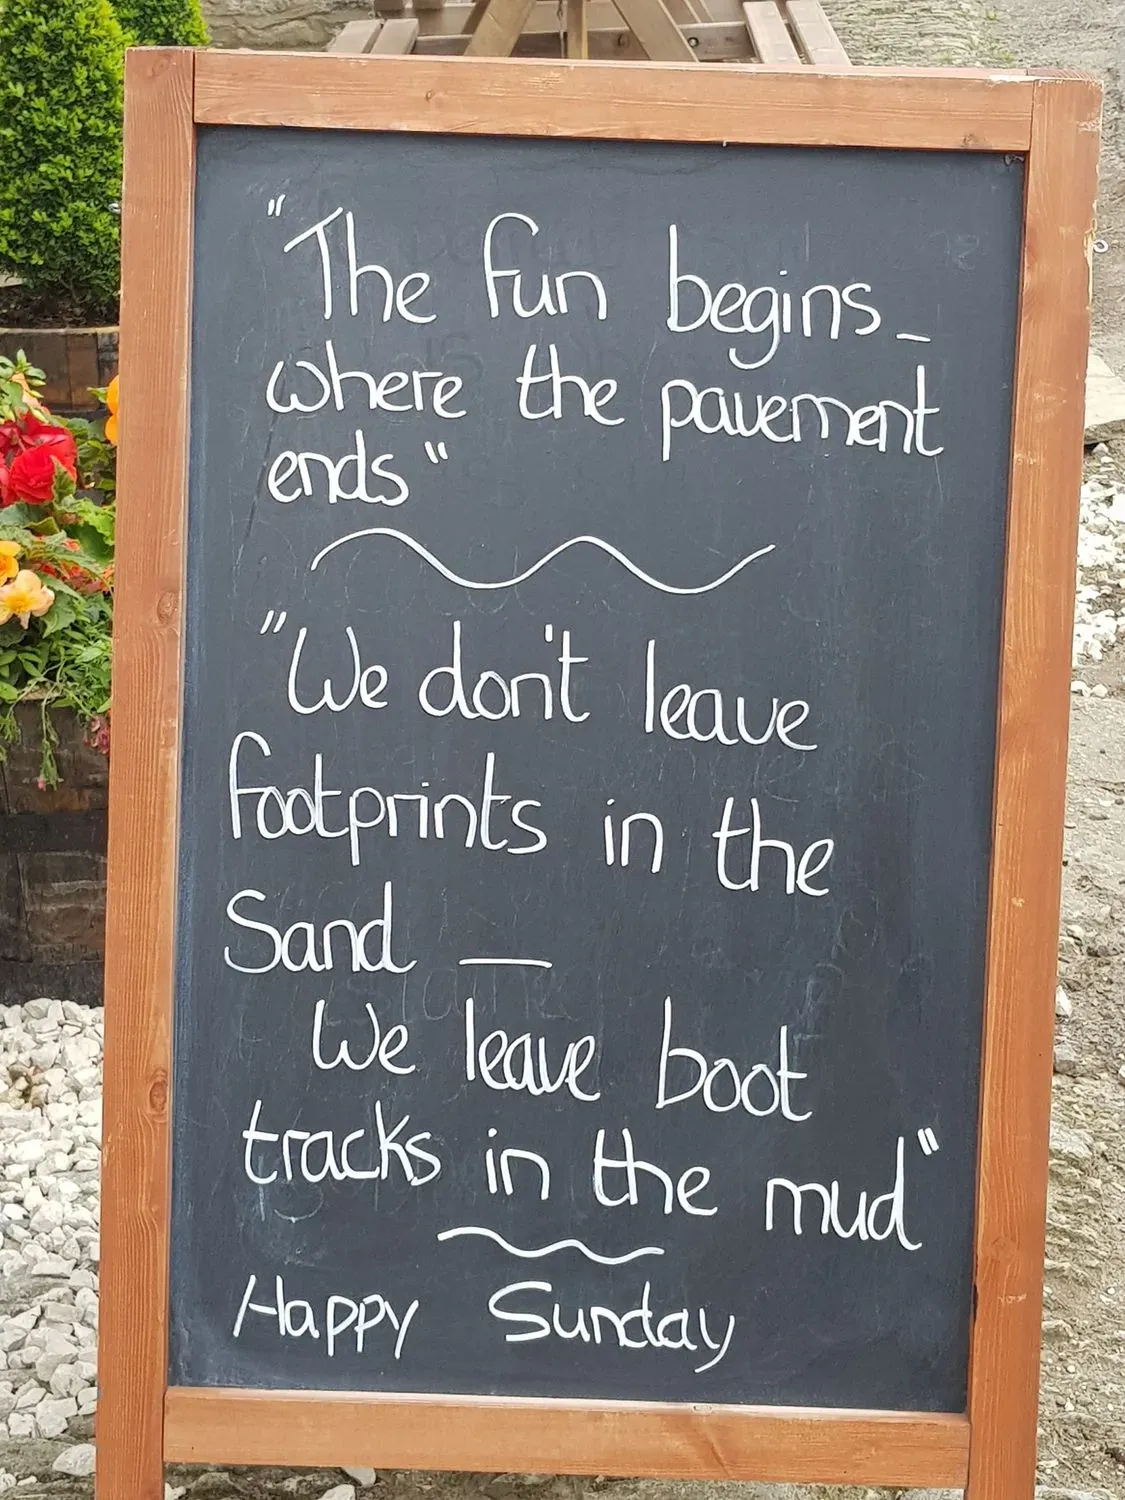 "The fun begins_
where the pavement
ends"
"We don't leave
footprints in the
Sand —
We leave boot
tracks in the mud"
Happy Sunday